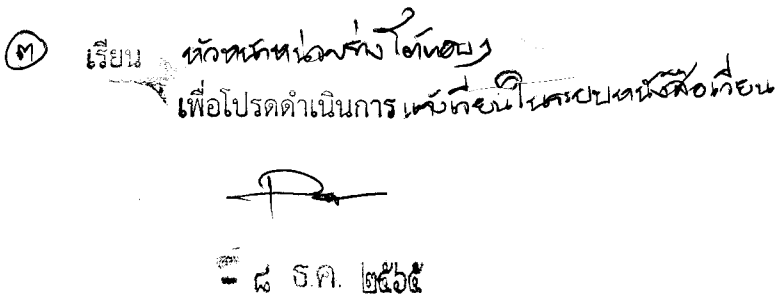 ๓ เรียน หัวหน้าหน่วยร่างโต้ตอบฯ
เพื่อโปรดดำเนินการ แจ้งเวียนในระบบหนังสือเวียน
- ๘ ธ.ค. ๒๕๖๕